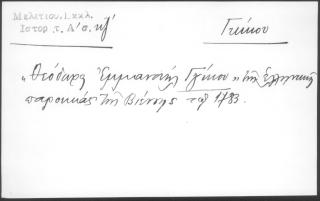 Μελετίου.Εκκλ.
Ιστορ τ. Α' σ. κζ'
Γκίκου
"Θεόδωρος Ἐμμανουὴλ Γκίκου" τῆς ἑλληνικῆς
παροικίας τῆς Βιέννης τῷ 1783.